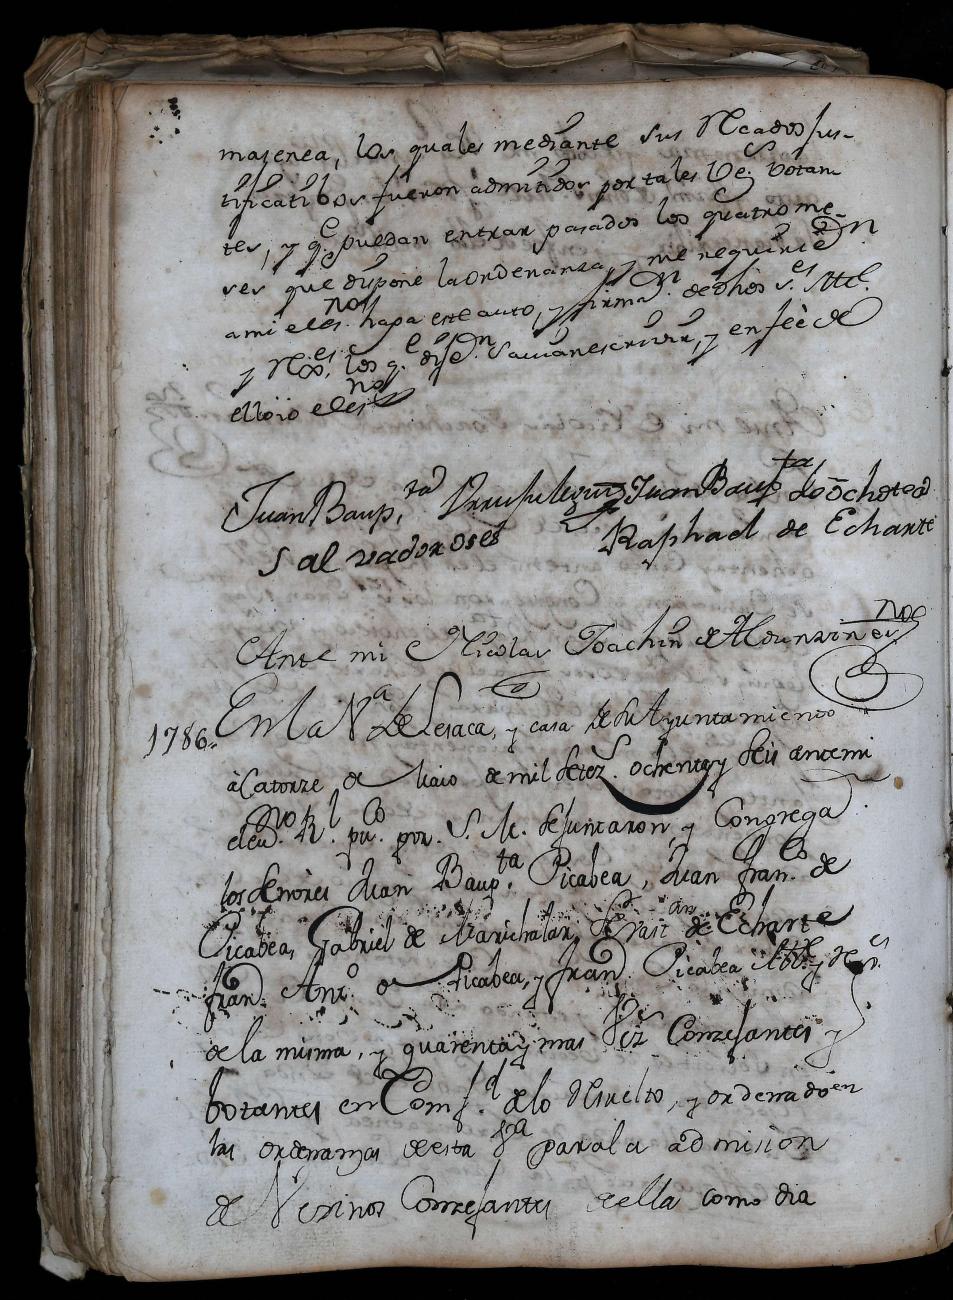 masenea, los quales mediante sus Rcados jus-
tificatibos fueron admitidos por tales Vs. Botan-
tes, y q.e puedan entrar pasados los quatro me-
ses que dispone la ordenanza, y me requirier.on
a mi el es.no haga este auto, y firma.n de dhos s.es Alc.
y R.es los q.e dije.n savian escrivir, y en feè de
ello io el es.no
Juan Baup.ta Juan Baup.ta de Ochoteco
Salvador oses Raphael de Echarte
Ante mi Nicolas Joachin de Alduncin es.no
1786. En la V.a de Lesaca, y casa de su Ayuntamiento
à Catorze de Maio de mil setez.s ochenta y seis ante mi
el es.no R.l pu.co por S. M. se juntaron, y Congrega
los señores Juan Baup.ta Picabea, Juan Fran.co de
Picabea, Gabriel de Marichalar, de Echarte
Fran.co Ant.o de Picabea, y Fran.co Picabea Alc.e y R.es
de la misma, y quarenta y mas Vez.s Conzejantes y
botantes en Conf.d de lo Resuelto, y ordenado en
las ordenanzas de esta V.a para la admision
de Vezinos Conzejantes de ella como dia